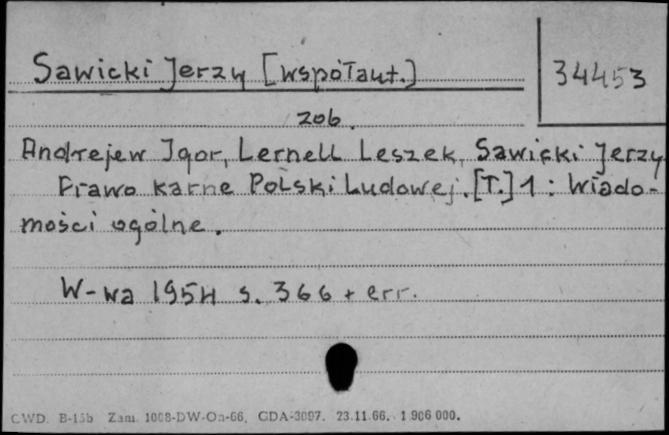 Sawicki Jerzy [współaut.]
34453
zob.
Andrejew Igor, Lernell Leszek, Sawicki Jerzy
Prawo karne Polski Ludowej. [T.] 1 : Wiado-
mości ogólne.
W-wa 1954 s. 366 + err.
CWD. B-15b Zam. 1008-DW-On-66, GDA-3097. 23.11.66. 1 906 000.